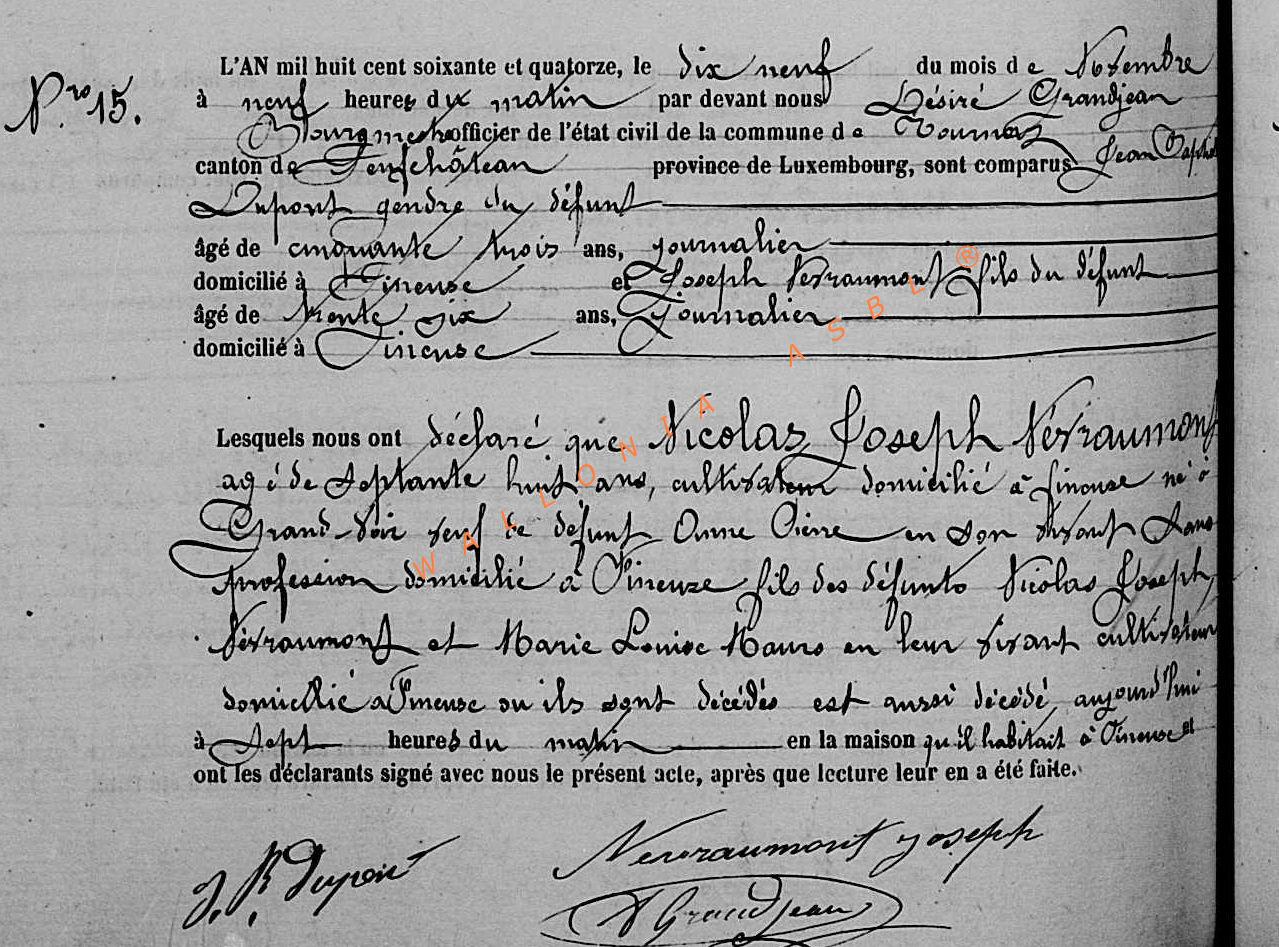 L'AN mil huit cent soixante et quatorze, le dix neuf du mois de Novembre
N.ro 15.
à neuf heures du matin par devant nous Désiré Grandjean
Bourgmestre officier de l'état civil de la commune de Tournay
canton de Neufchâteau province de Luxembourg, sont comparus Jean
Dupont gendre du défunt
âgé de cinquante trois ans, journalier
domicilié à Tineuse et Joseph Nevraumont fils du défunt
âgé de trente six ans, Journalier
domicilié à Tineuse
WALLONIA ASBL ®
Lesquels nous ont déclaré que Nicolas Joseph Nevraumont
agé de septante huit ans, cultivateur domicilié à Tineuse né à
Grand-Voir veuf de défunt Anne Pierre en son vivant sans
profession domicilié à Tineuse fils des défunts Nicolas Joseph,
Nevraumont et Marie Louise en leur vivant cultivateur
domicilié à Tineuse ou ils sont décédés est aussi décédé, aujourd'hui
à Sept heures du matin en la maison qu'il habitait à Tineuse et
ont les déclarants signé avec nous le présent acte, après que lecture leur en a été faite.
J. R. Dupont
Nevraumont joseph
D Grandjean